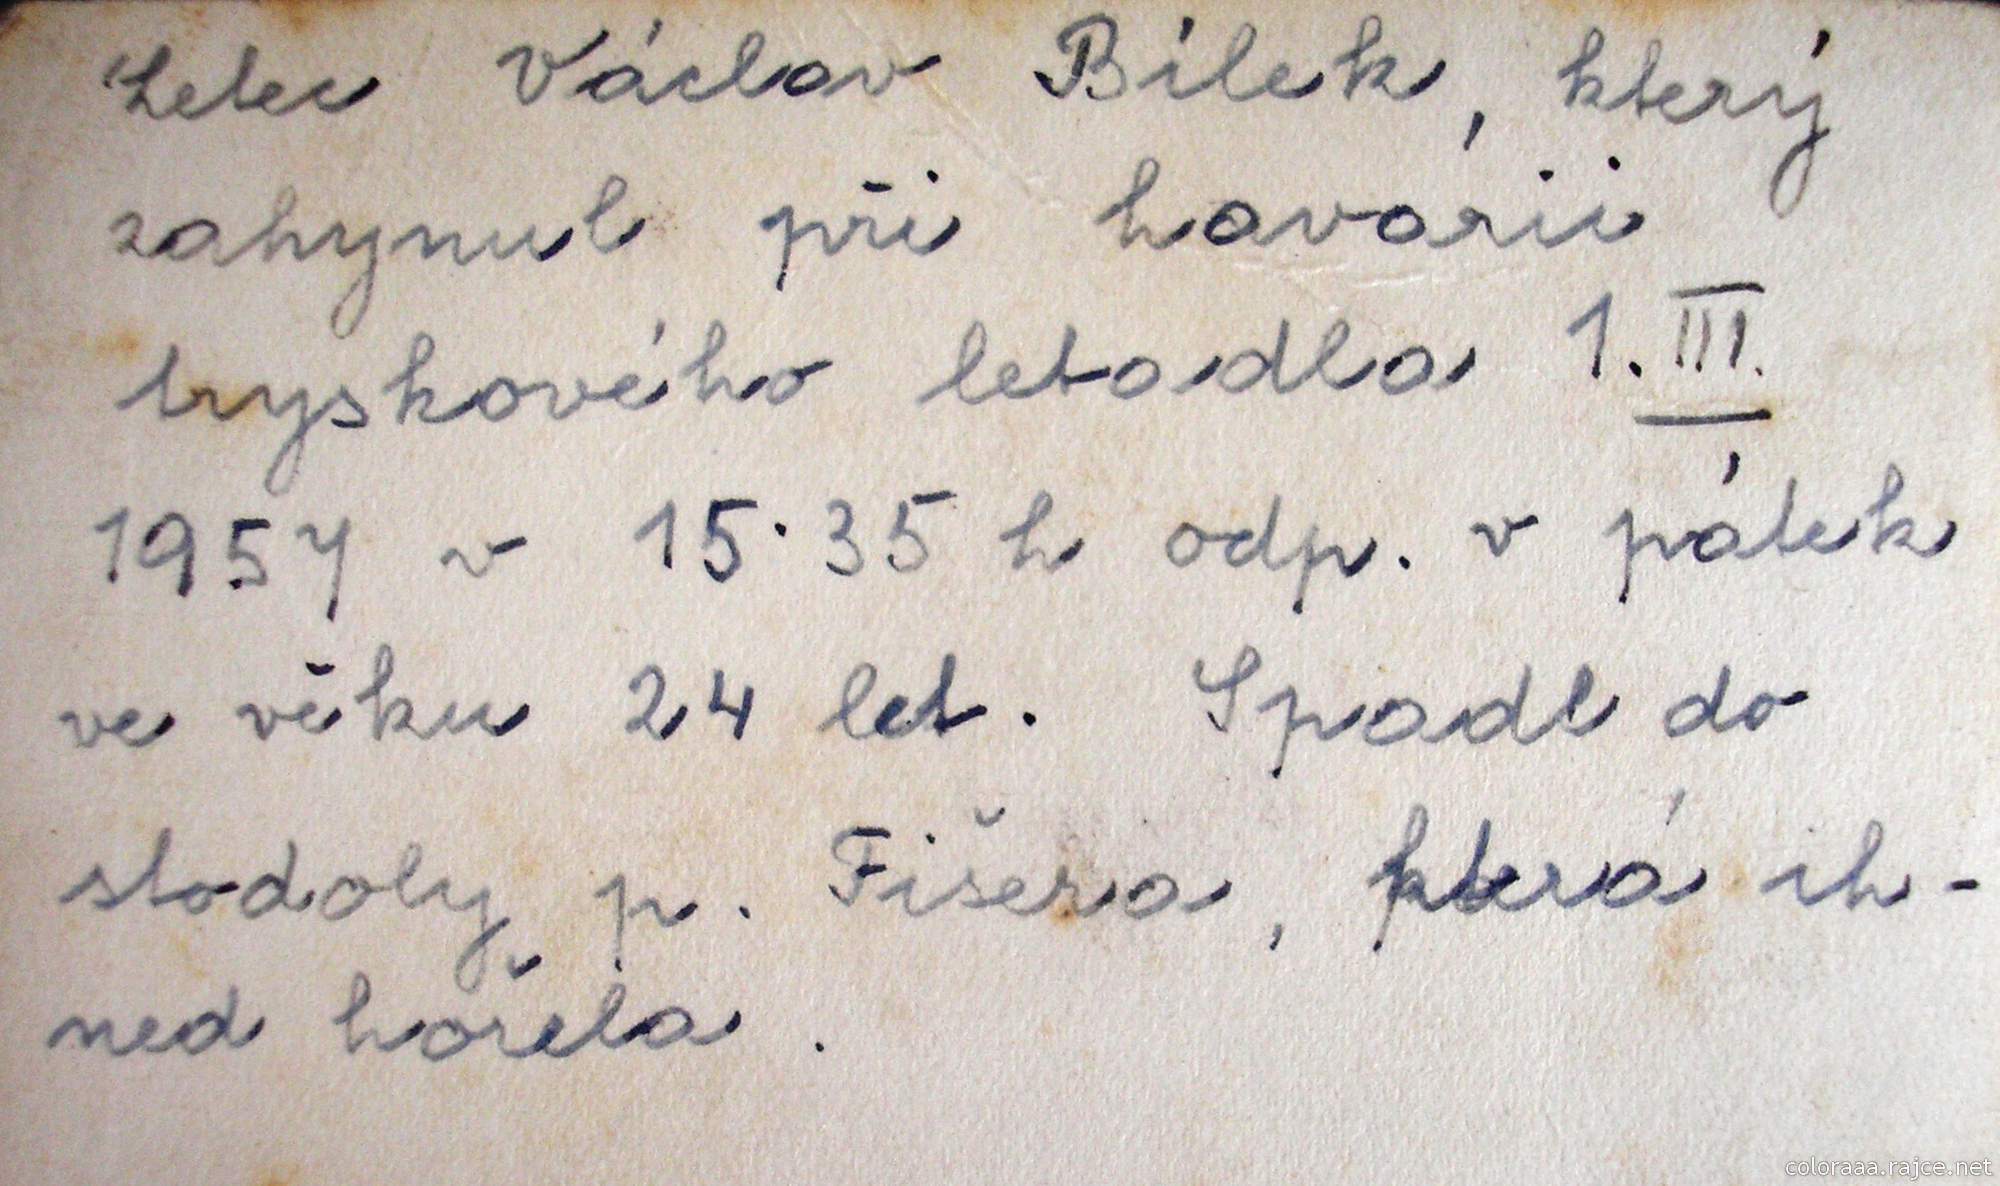 Letec Václav Bílek, který
zahynul při havárii
tryskového letadla 1. III.
1957 v 15·35 h odp. v pátek
ve věku 24 let. Spadl do
stodoly p. Fišera, která ih-
ned hořela.
coloraaa.rajce.net